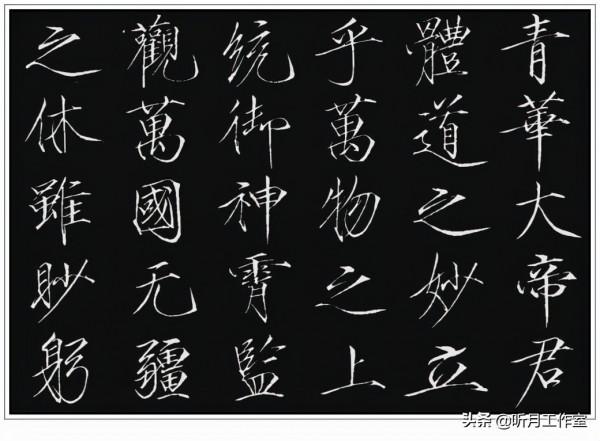 青華大帝君
體道之妙立
乎萬物之上
統御神霄監
觀萬國无疆
之休雖眇躬
头条 @听月工作室